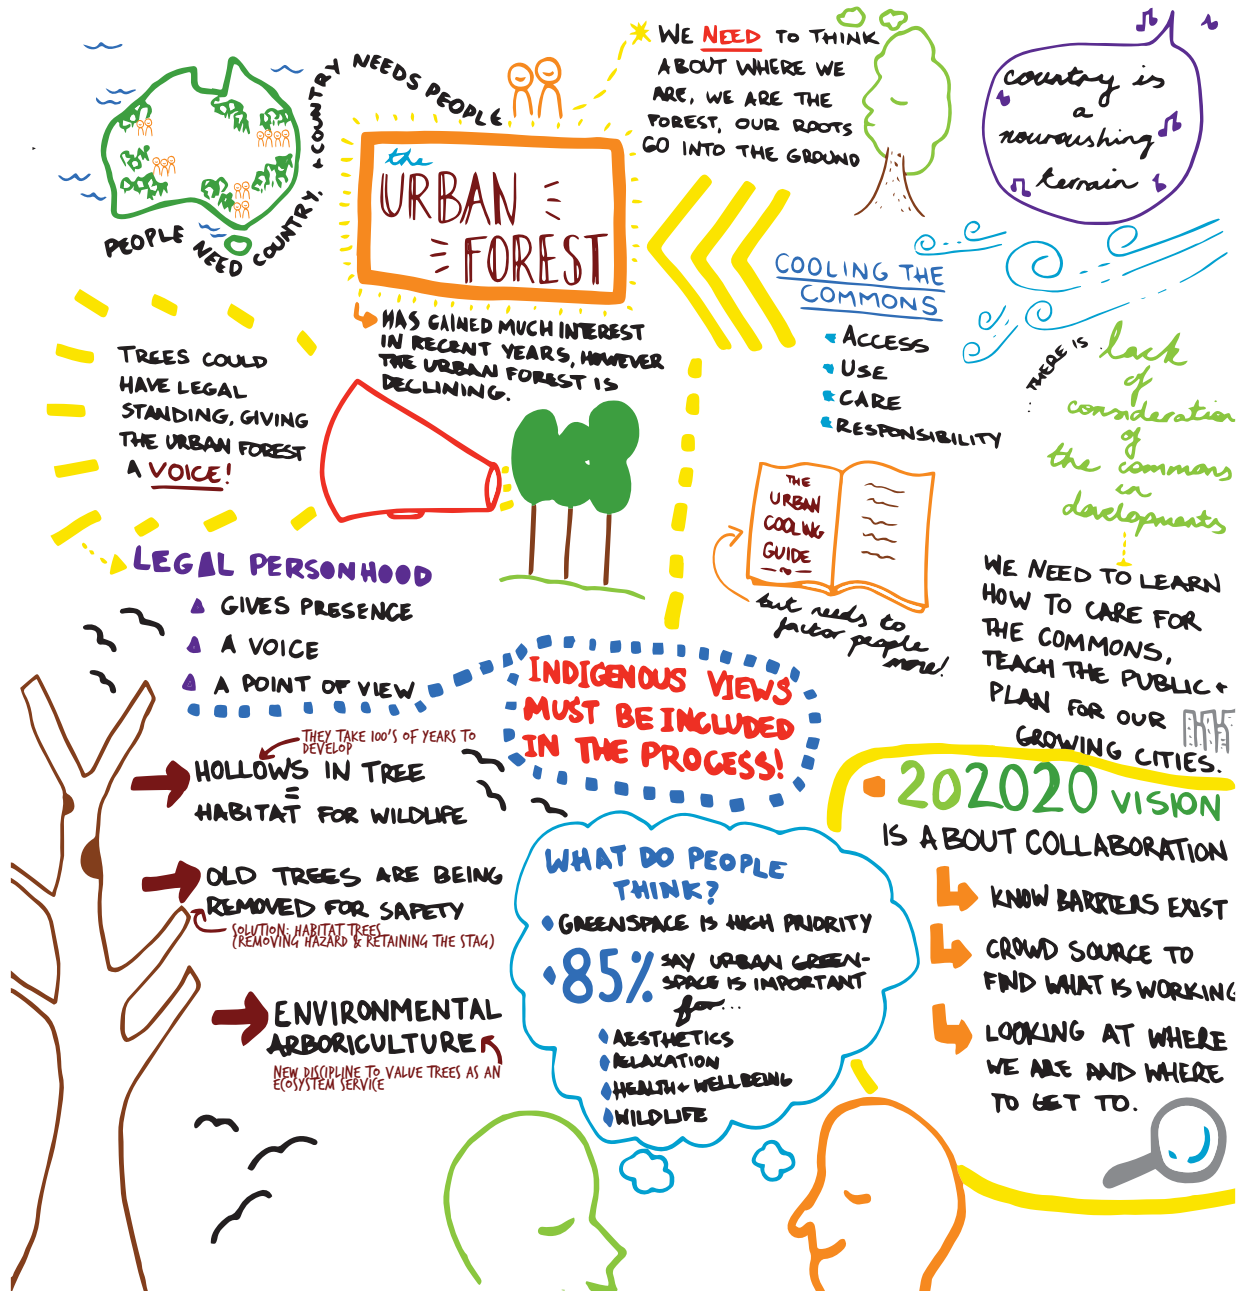 PEOPLE NEED COUNTRY, + COUNTRY NEEDS PEOPLE
the
URBAN
FOREST
HAS GAINED MUCH INTEREST
IN RECENT YEARS, HOWEVER
THE URBAN FOREST IS
DECLINING.
WE NEED TO THINK
ABOUT WHERE WE
ARE, WE ARE THE
FOREST, OUR ROOTS
GO INTO THE GROUND
country is
a
nouroushing
terrain
COOLING THE
COMMONS
ACCESS
USE
CARE
RESPONSIBILITY
THERE IS
lack
of
consideration
of
the commons
in
developments
TREES COULD
HAVE LEGAL
STANDING, GIVING
THE URBAN FOREST
A VOICE!
THE
URBAN
COOLING
GUIDE
but needs to
factor people
more!
WE NEED TO LEARN
HOW TO CARE FOR
THE COMMONS,
TEACH THE PUBLIC +
PLAN FOR OUR
GROWING CITIES.
LEGAL PERSONHOOD
GIVES PRESENCE
A VOICE
A POINT OF VIEW
INDIGENOUS VIEWS
MUST BE INCLUDED
IN THE PROCESS!
THEY TAKE 100'S OF YEARS TO
DEVELOP
HOLLOWS IN TREE
=
HABITAT FOR WILDLIFE
OLD TREES ARE BEING
REMOVED FOR SAFETY
SOLUTION: HABITAT TREES
(REMOVING HAZARD & RETAINING THE STAG)
ENVIRONMENTAL
ARBORICULTURE
NEW DISCIPLINE TO VALUE TREES AS AN
ECOSYSTEM SERVICE
WHAT DO PEOPLE
THINK?
GREENSPACE IS HIGH PRIORITY
85% SAY URBAN GREEN-
SPACE IS IMPORTANT
for...
AESTHETICS
RELAXATION
HEALTH + WELLBEING
WILDLIFE
202020 VISION
IS ABOUT COLLABORATION
KNOW BARRIERS EXIST
CROWD SOURCE TO
FIND WHAT IS WORKING
LOOKING AT WHERE
WE ARE AND WHERE
TO GET TO.